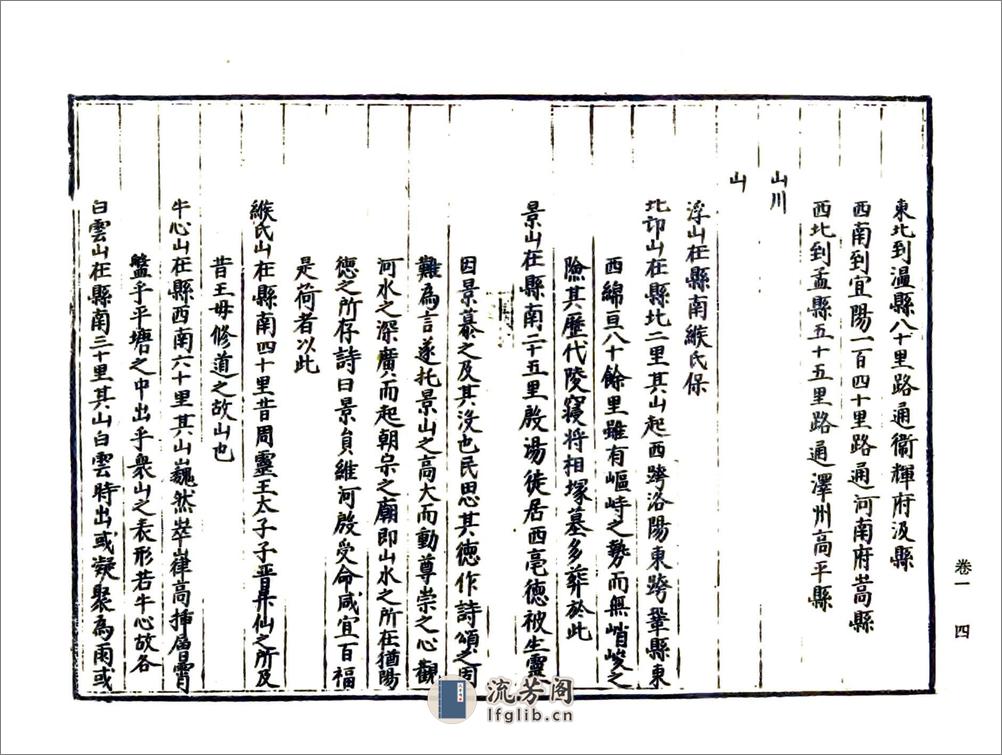 東北到温縣八十里路通衛輝府汲縣
西南到宜陽一百四十里路通河南府嵩縣
西北到孟縣五十五里路通澤州高平縣
山川
山
浮山在縣南緱氏保
北邙山在縣北二里其山起西跨洛陽東跨鞏縣東
西綿亘八十餘里雖有嶇峙之勢而無峭峻之
險其歷代陵寢将相塚墓多葬於此
景山在縣南二十五里殷湯徙居西亳德被生靈
因景慕之及其没也民思其德作詩頌之固
難為言遂托景山之高大而動尊崇之心觀
河水之深廣而起朝宗之廟即山水之所在猶陽
德之所存詩曰景員維河殷受命咸宜百福
是荷者以此
緱氏山在縣南四十里昔周靈王太子子晋昇仙之所及
昔王母修道之故山也
牛心山在縣西南六十里其山巍然崒嵂高插層霄
盤乎平塘之中出乎衆山之表形若牛心故各
白雲山在縣南三十里其山白雲時出或凝聚為雨或
卷一 四
流芳阁
lfglib.cn